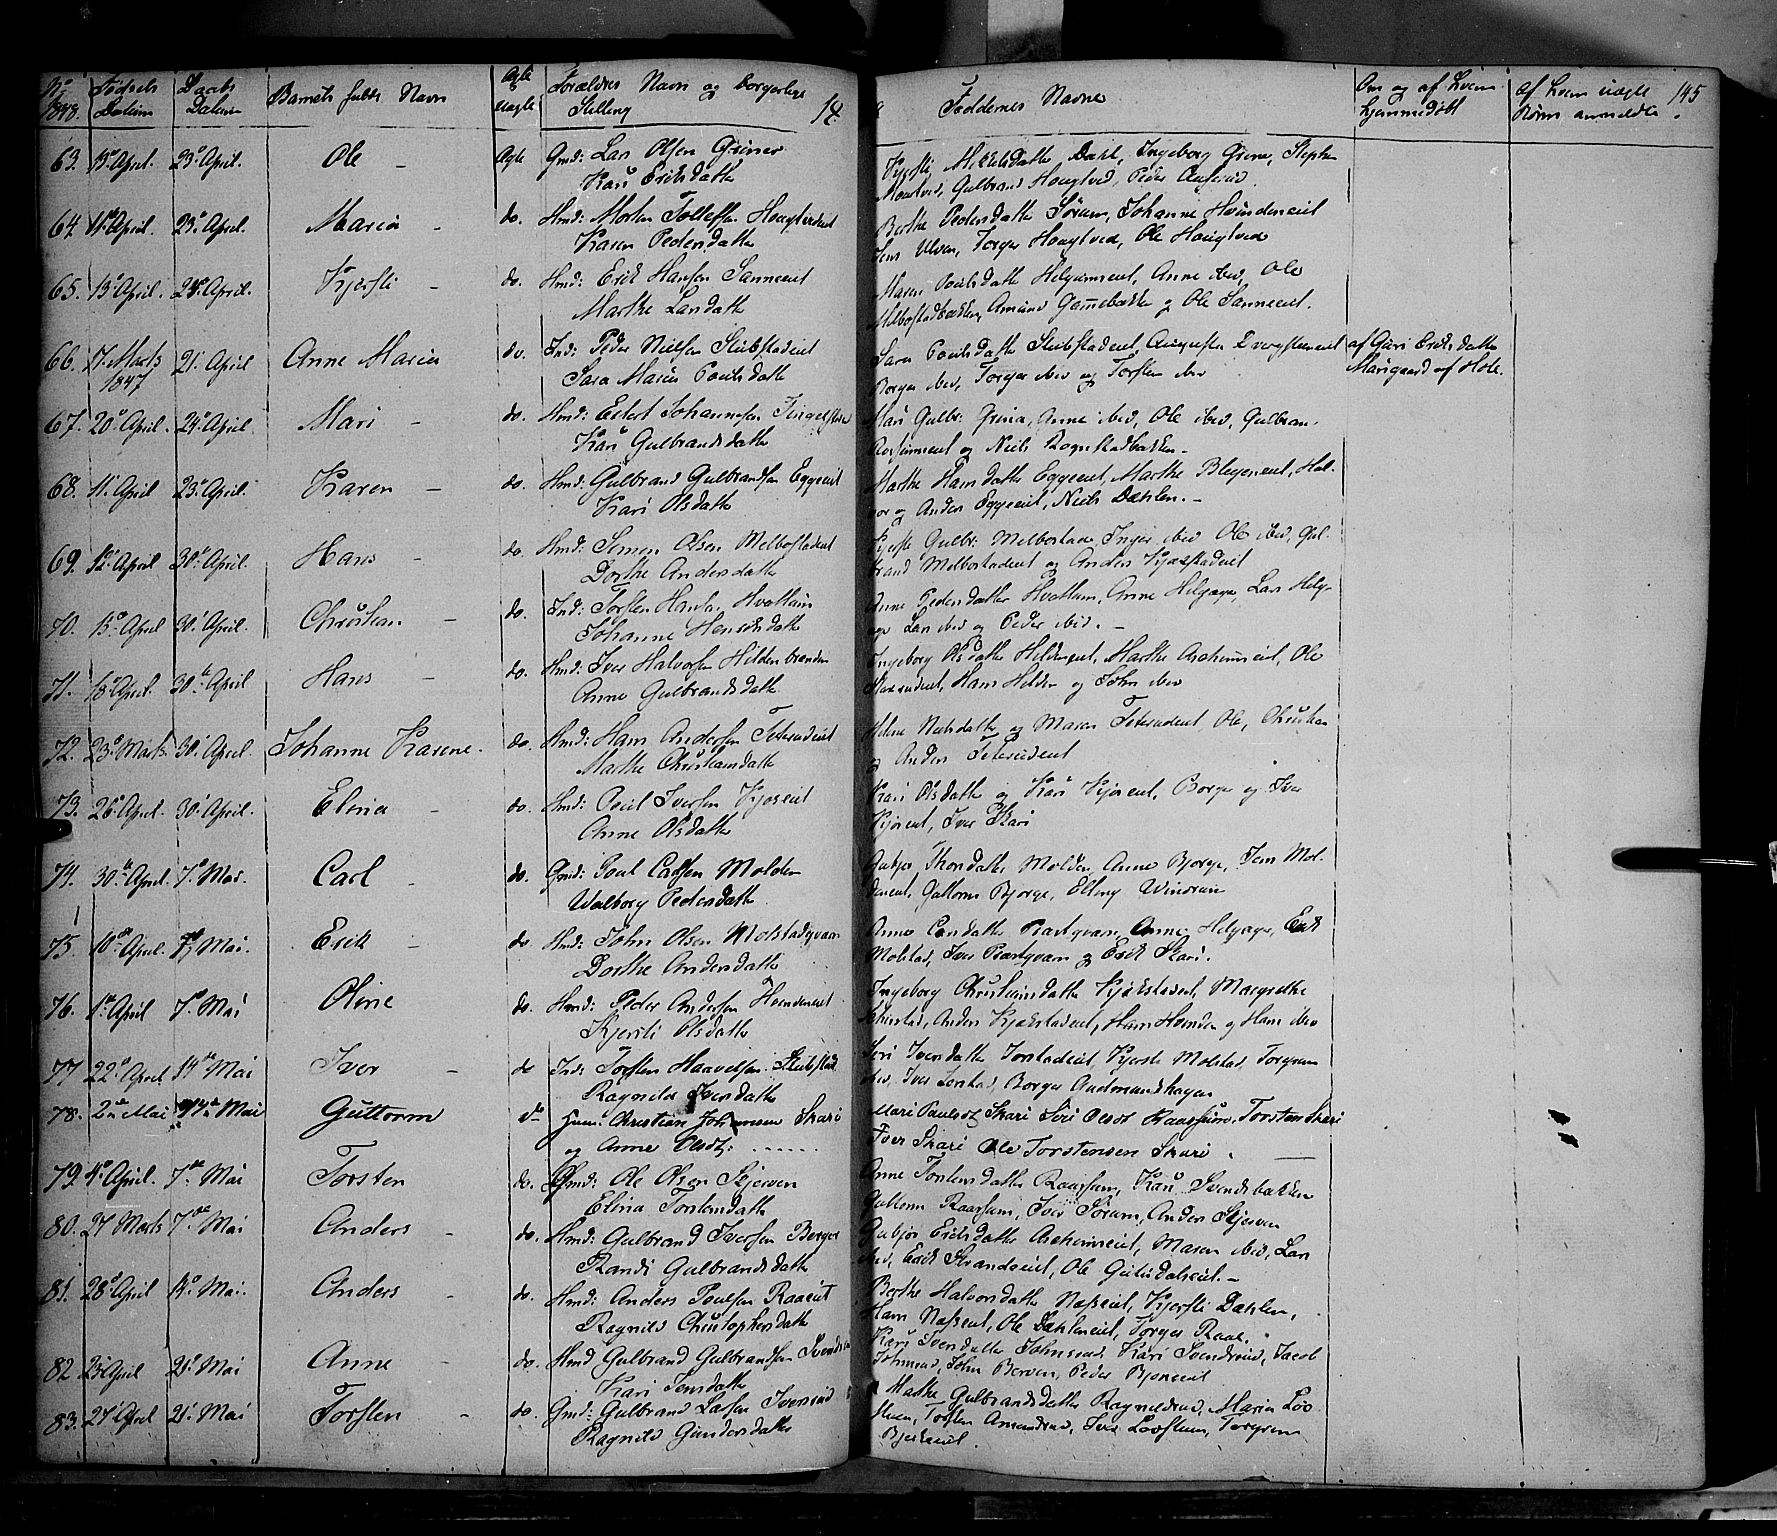 No 1848. Fødsels Datum Daabs Datum Barnets fulde Navn Ægte Uægte Forældres Navn og borgerlige Stilling 14. Faddernes Navne Om og af hvem hjemmedøbt af hvem uægte Børn anmeldte. 145
63. 13 April. 23 April. Ole - Ægte Gmd: Lars Olsen Griner
Kari Eriksdatter
Kjersti Mikkelsdatter Dæhl, Ingeborg Grina, Stephen
Hougtved, Gulbrand Hougtved, Peder
64. 11 April. 23 April. Maria - do. Hmd: Morten Tollefsen Hougtvedeiet
Karen Pedersdatter
Berthe Pedersdatter Sørum, Johanne Hvindeneiet
Jens Ulven, Torger Hougtved, Ole Hougtved
65. 13 April. 24 April. Kjersti - do. Hmd: Erik Hansen Sanneeiet
Marthe Larsdatter
Maren Poulsdatter Helgumeiet, Anne ibid, Ole
Melbostadbakken, Amund Gamebakke og Ole Sanneeiet.
66. 17 Marts 1847 21 April Anne Maria do. Ind: Peder Nielsen Stubstadeiet
Sara Maria Poulsdatter
Sara Poulsdatter Stubstadeiet,
Borger ibid, Torger ibid og Torsten ibid
af Guri Eriksdatter
Morigaard af Hole.
67. 20 April. 24 April. Mari - do. Hmd: Eilert Johannesen
Kari Gulbrandsdatter
Mari Gulbr: Grina, Anne ibid, Ole ibid, Gulbran.
og Niels Rognstadbakken -
68. 11 April 23 April. Karen - do. Hmd: Gulbrand Gulbrandsen Eggeeiet
Kari Olsdatter
Marthe Hansdatter Eggeeiet, Marthe Bleyeneiet, Hal-
vor og Anders Eggeeiet, Niels Dæhlen. -
69. 12 April 30 April. Hans - do. Hmd: Simen Olsen Melbostadeiet
Dorthe Andersdatter
Kjersti Gulbr: Melbostad, Inger ibid Ole ibid, Gul-
brand Melbostadeiet og Anders Kjøkstadeiet
70. 13 April 30 April. Christian - do. Ind: Torsten Hansen Hvattum
Johanne Hensdatter
Anne Pedersdatter Hvattum, Anne Helgager, Lars Helg-
ager Lars ibid og Peder ibid. -
71. 18 April. 30 April Hans - do. Hmd: Iver Halvorsen Hildenbranden
Anne Gulbrandsdatter
Ingeborg Olsdatter Hildeneiet, Marthe Ascheimeiet, Ole
Hans Hilden og John ibid
72. 23 Marts. 30 April. Johanne Karene. do. Hmd: Hans Andersen Teterudeiet
Marthe Christiansdatter
Helene Nielsdatter og Maren Teterudeiet Ole, Christian
og Anders Teterudeiet
73. 26 April. 30 April. Elina - do. Hmd: Poul Iversen Kjoseiet
Anne Olsdatter
Kari Olsdatter og Kari Kjoseiet, Borger og Iver
Kjoseiet, Iver Skari
74. 30 April 7 Mai. Carl - do. Gmd: Poul Carlsen Molden
Walborg Pedersdatter
Gubjør Thorsdatter Molden, Anne Bjørge, Jens Mol-
deneiet, Guttorm Bjørge, Elling Windrum
75. 10 April. 7 Mai. Erik - do Hmd: John Olsen Molstadqvarn
Dorthe Andersdatter
Anne Larsdatter Præstqvarn, Anne Helgager, Erik
Molstad, Iver Præstqvarn og Erik Skari.
76. 1 April 7 Mai Oline do. Hmd: Peder Andersen Hvindeneiet
Kjersti Olsdatter
Ingeborg Christiansdatter Kjøkstadeiet, Margrethe
Anders Kjøkstadeiet, Hans Hvinden og Hans ibid
77 22 April 14 Mai Iver - do Ind: Torsten Haavelsen Stubstad
Ragnild Iversdatter
Siri Iversdatter Jorstadeiet, Kjersti Molstad, Torgrim
ibid, Iver Jorstad, Borger Audmundshagen
78. 2 Mai Mai Guttorm do Hmd. Christian Johannesen Skari
og Anne Olsdt. ......
Mari Paulsdt Skari Siri Olsdt Raassum, Torsten Skari
Iver Skari Ole Torstensen Skari.
79. 4 April. 7 Mai Torsten do. Gmd: Ole Olsen Skjerven
Elina Torstensdatter
Anne Torstensdatter Raassum, Kari Svendsbakken
Guttorm Raassum, Iver Sørum, Anders Skjerven
80. 27 Marts 7 Mai Anders - do. Hmd: Gulbrand Iversen Berger
Randi Gulbrandsdatter
Gubjør Eriksdatter Ascheimeiet, Maren ibid, Lars
ibid, Erik Strandeiet, Ole Gulsdalseiet. -
81. 28 April 13 Mai. Anders - do. Hmd: Anders Poulsen Raaeiet
Ragnild Christophersdatter
Berthe Halvorsdatter Næsseiet, Kjersti Dæhlen,
Hans Næsseiet, Ole Dæhleneiet, Torger Raae.
82 23 April 21 Mai Anne - do. Hmd Gulbrand Gulbrandsen Svendsrud
Kari Jensdatter
Kari Svendsdatter Johnsrud, Kari Svendsrud, Jacob
Johnsrud, John Berven, Peder Bjoneeiet
83. 27 April 21 Mai Torsten - do. Gmd: Gulbrand Larsen Iversrud
Ragnild Gundersdatter
Marthe Gulbrandsdatter Ragnildrud, Maria Lov-
lien, Torsten Amundrud, Iver Lovlien, Torgrim
Bjerkeeiet.